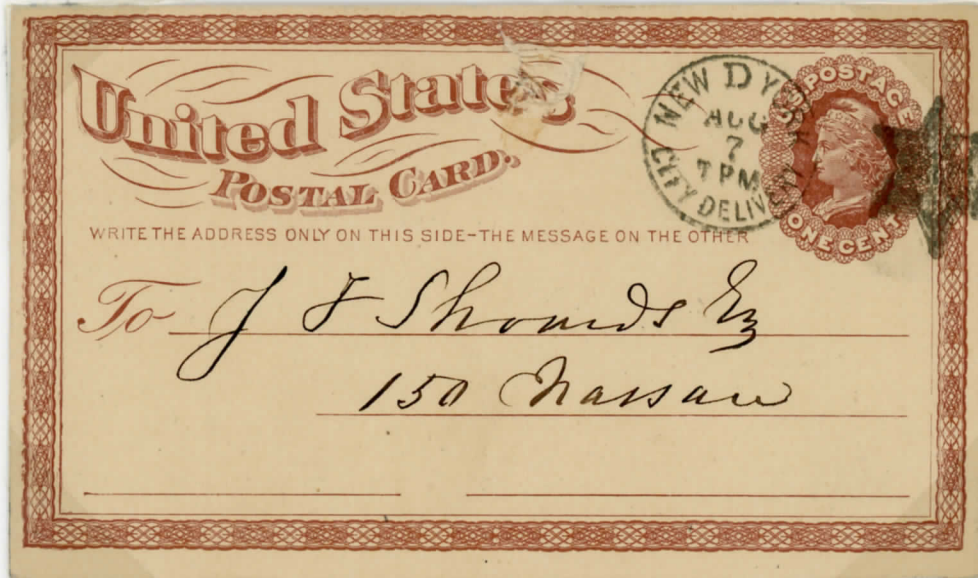 United States
POSTAL CARD.
NEW YORK D
AUG
7
7 PM
CITY DELIVERY
U.S. POSTAGE
ONE CENT
WRITE THE ADDRESS ONLY ON THIS SIDE–THE MESSAGE ON THE OTHER
To J F
150 Nassau